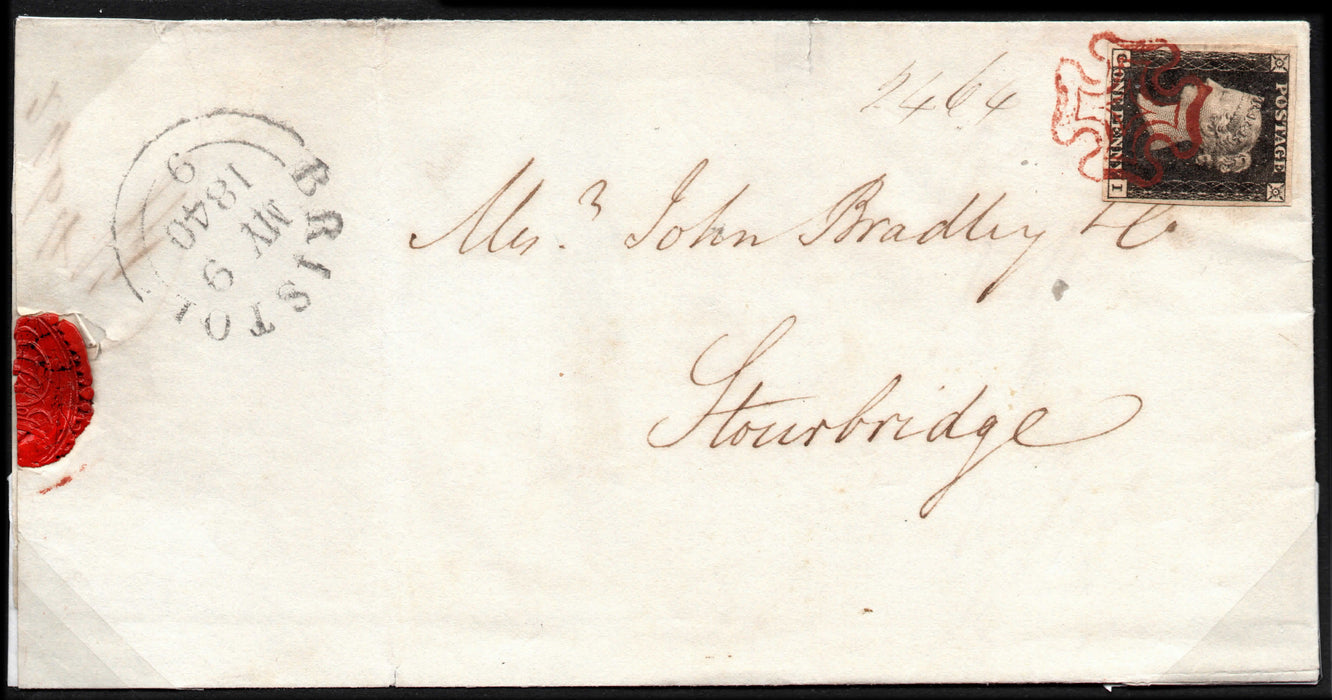 2464
POSTAGE
ONE PENNY
C I
Mess.rs John Bradley & Co
Stourbridge
BRISTOL
MY 9
1840
9